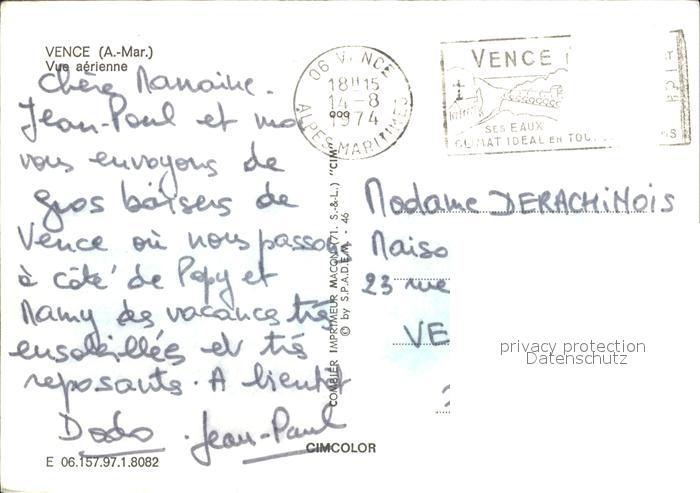 VENCE (A.-Mar.)
Vue aérienne
Chère Marraine.
Jean-Paul et moi
vous envoyons de
gros baisers de
Vence où nous passons
à côté de Papy et
Mamy des vacances très
ensoleillées et très
reposantes. A bientôt
Dodo. Jean-Paul
E 06.157.97.1.8082
CIMCOLOR
COMBIER IMPRIMEUR MACON (71. S.-&-L.) "CIM"
© by S.P.A.D.E.M. - 46
06 VENCE
18H15
14-8
1974
ALPES-MARITIMES
VENCE
SES EAUX
CLIMAT IDEAL EN TOU
Madame DERACHINOIS
Maiso
23 rue
VE
privacy protection
Datenschutz